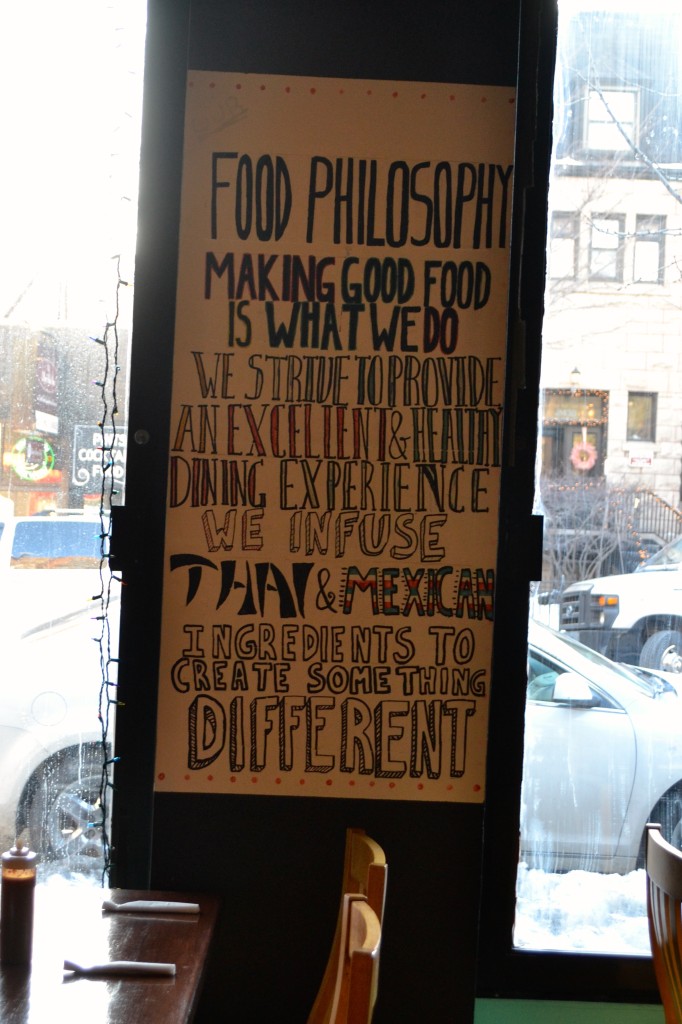 FOOD PHILOSOPHY
MAKING GOOD FOOD
IS WHAT WE DO
WE STRIVE TO PROVIDE
AN EXCELLENT & HEALTHY
DINING EXPERIENCE
WE INFUSE
THAI & MEXICAN
INGREDIENTS TO
CREATE SOMETHING
DIFFERENT